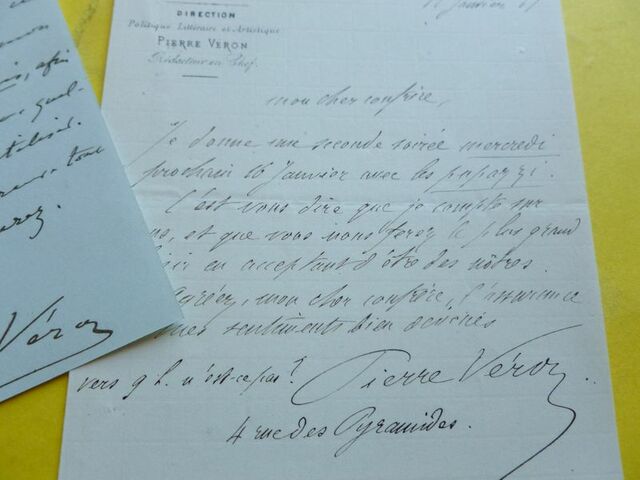 DIRECTION
Politique Littéraire et Artistique
PIERRE VÉRON
Rédacteur en Chef
Janvier
mon cher confrère,
Je donne une seconde soirée mercredi
prochain 16 Janvier avec les pupazzi.
C'est vous dire que je compte sur
us, et que vous nous ferez le plus grand
isir en acceptant d'être des nôtres.
Agréez, mon cher confrère, l'assurance
mes sentiments bien dévoués
vers 9 h. n'est-ce pas? Pierre Véron
4 rue des Pyramides.
afin
quel-
tilisé.
tout
Véron